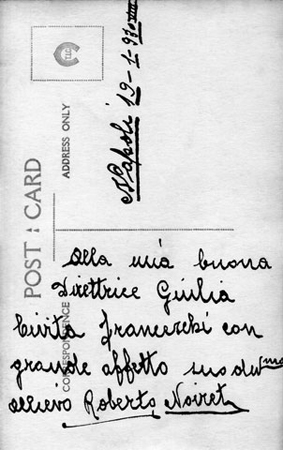 POST CARD
ADDRESS ONLY
CORRESPONDENCE
Napoli 19-1-930
Alla mia buona
Direttrice Giulia
Civita Franceschi con
grande affetto suo
allievo Roberto Noiret